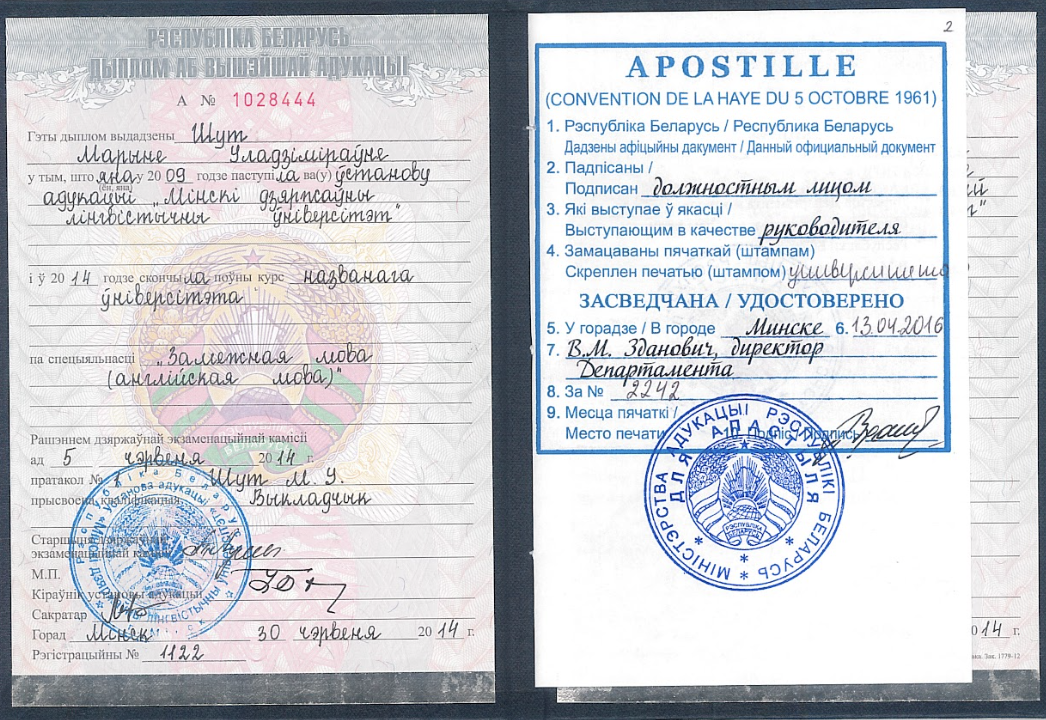 РЭСПУБЛІКА БЕЛАРУСЬ
ДЫПЛОМ АБ ВЫШЭЙШАЙ АДУКАЦЫІ
А № 1028444
Гэты дыплом выдадзены Шут
Марыне Уладзіміраўне
у тым, што яна у 2009 годзе паступіла ва(у) ўстанову
(ён, яна)
адукацыі „Мінскі дзяржаўны
лінгвістычны ўніверсітэт"
і ў 2014 годзе скончыла поўны курс названага
ўніверсітэта
па спецыяльнасці „Замежная мова
(англійская мова)"
Рашэннем дзяржаўнай экзаменацыйнай камісіі
ад 5 чэрвеня 2014 г.
пратакол № Шут М. У.
прысвоена кваліфікацыя Выкладчык
Старшыня дзяржаўнай
экзаменацыйнай камісіі
М.П.
Кіраўнік установы адукацыі
Сакратар
Горад Мінск 30 чэрвеня 2014 г.
Рэгістрацыйны № 1122
2
APOSTILLE
(CONVENTION DE LA HAYE DU 5 OCTOBRE 1961)
1. Рэспубліка Беларусь / Республика Беларусь
Дадзены афіцыйны дакумент / Данный официальный документ
2. Падпісаны /
Подписан должностным лицом
3. Які выступае ў якасці /
Выступающим в качестве руководителя
4. Замацаваны пячаткай (штампам)
Скреплен печатью (штампом) университета
ЗАСВЕДЧАНА / УДОСТОВЕРЕНО
5. У горадзе / В городе Минске 6. 13.04.2016
7. В.М. Зданович, директор
Департамента
8. За № 2242
9. Месца пячаткі /
Место печати 10. Подпіс / Подпись
МІНІСТЭРСТВА АДУКАЦЫІ РЭСПУБЛІКІ БЕЛАРУСЬ
ДЛЯ АПАСТЫЛЯ
РЭСПУБЛІКА
БЕЛАРУСЬ
014 г.
Зак. 1779-12